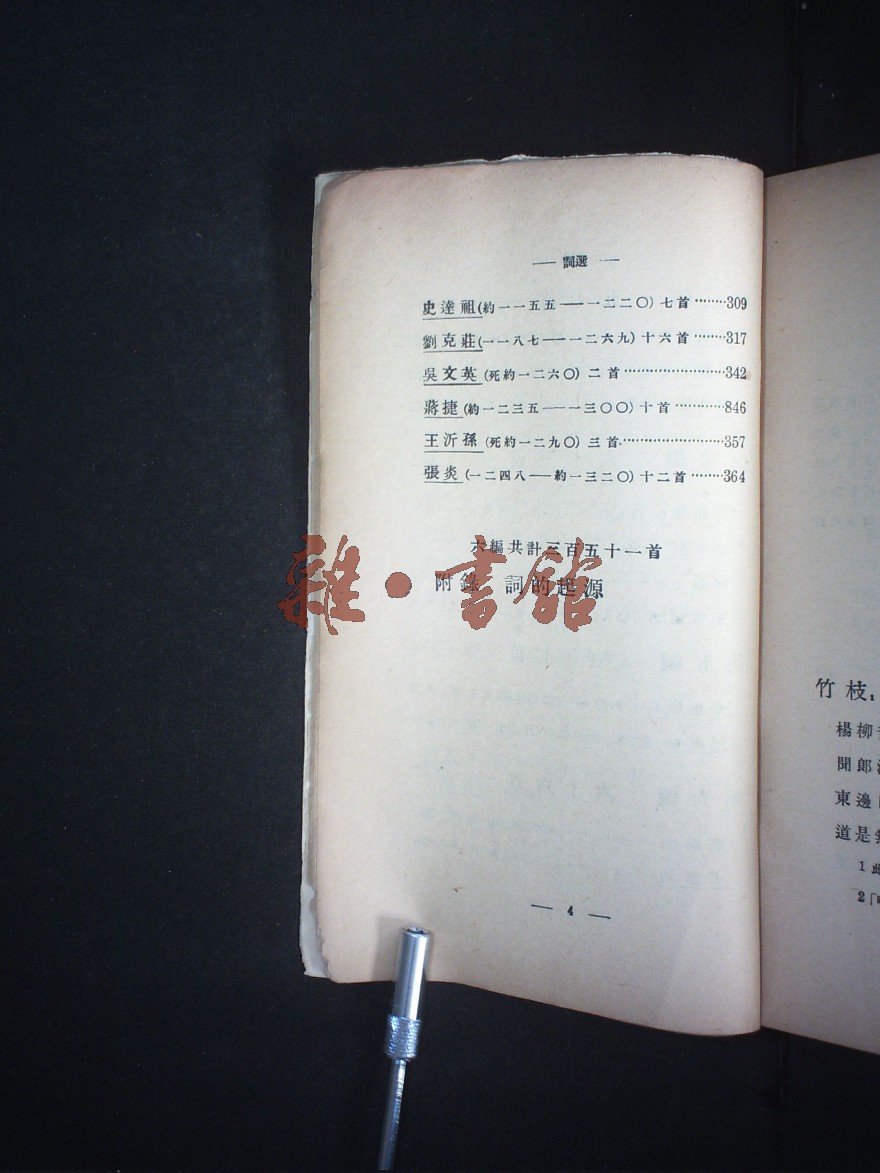 — 詞選 —
史達祖(約一一五五——一二二〇)七首········309
劉克莊(一一八七——一二六九)十六首········317
吳文英(死約一二六〇)二首·························342
蔣捷(約一二三五——一三〇〇)十首············846
王沂孫(死約一二九〇)三首·························357
張炎(一二四八——約一三二〇)十二首········364
六編共計三百五十一首
附錄 詞的起源
雜·書館
— 4 —
竹枝₁
楊柳
聞郎
東邊
道是
1 此
2「